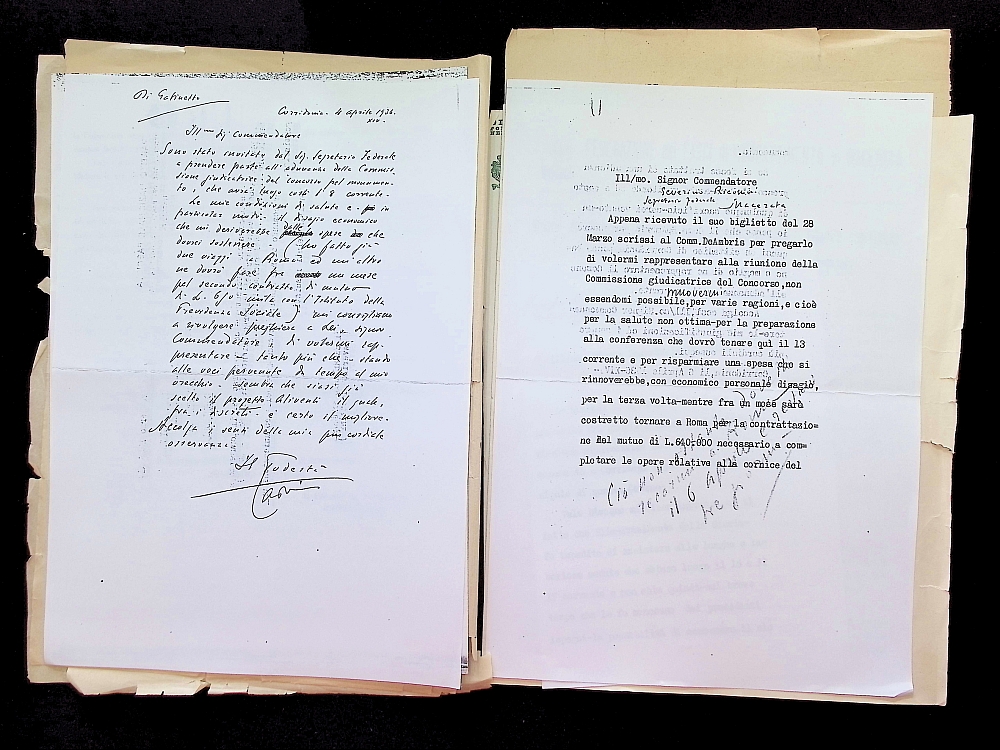 Di Gabinetto
Corridonia - 4 aprile 1936.
XIV.
Ill.mo Sig. Commendatore
Sono stato invitato dal Sig. Segretario Federale
a prendere parte all'adunanza della Commis-
sione giudicatrice del concorso pel monumen-
to, che avrà luogo costì l'8 corrente.
Le mie condizioni di salute e in
particolar modo il disagio economico
che mi deriverebbe dalle spese che
dovrei sostenere (ho fatto già
due viaggi a Roma ed un altro
ne dovrò fare fra un mese
pel secondo contratto di mutuo
con l'Istituto della
Previdenza Sociale) mi consigliano
a rivolgere preghiera a Lei, Signor
Commendatore, di volermi rap-
presentare - tanto più che - stando
alle voci pervenute di tempo al mio
orecchio - sembra che siasi già
scelto il progetto Aliventi il quale,
fra i discreti - è certo il migliore.
Accolga i sensi della mia più cordiale
osservanza
Il Podestà
Ill/mo. Signor Commendatore
Severino Riccardi
Segretario Federale
Macerata
Appena ricevuto il suo biglietto del 28
Marzo scrissi al Comm.DeAmbris per pregarlo
di volermi rappresentare alla riunione della
Commissione giudicatrice del Concorso,non
muovermi
essendomi possibile,per varie ragioni,e cioè
per la salute non ottima-per la preparazione
alla conferenza che dovrò tenere qui il 13
corrente e per risparmiare una spesa che si
rinnoverebbe,con economico personale disagio,
per la terza volta-mentre fra un mese sarà
costretto tornare a Roma per la contrattazio=
ne del mutuo di L.640.000 necessario a com=
pletare le opere relative alla cornice del
Ciò non
il 6 aprile